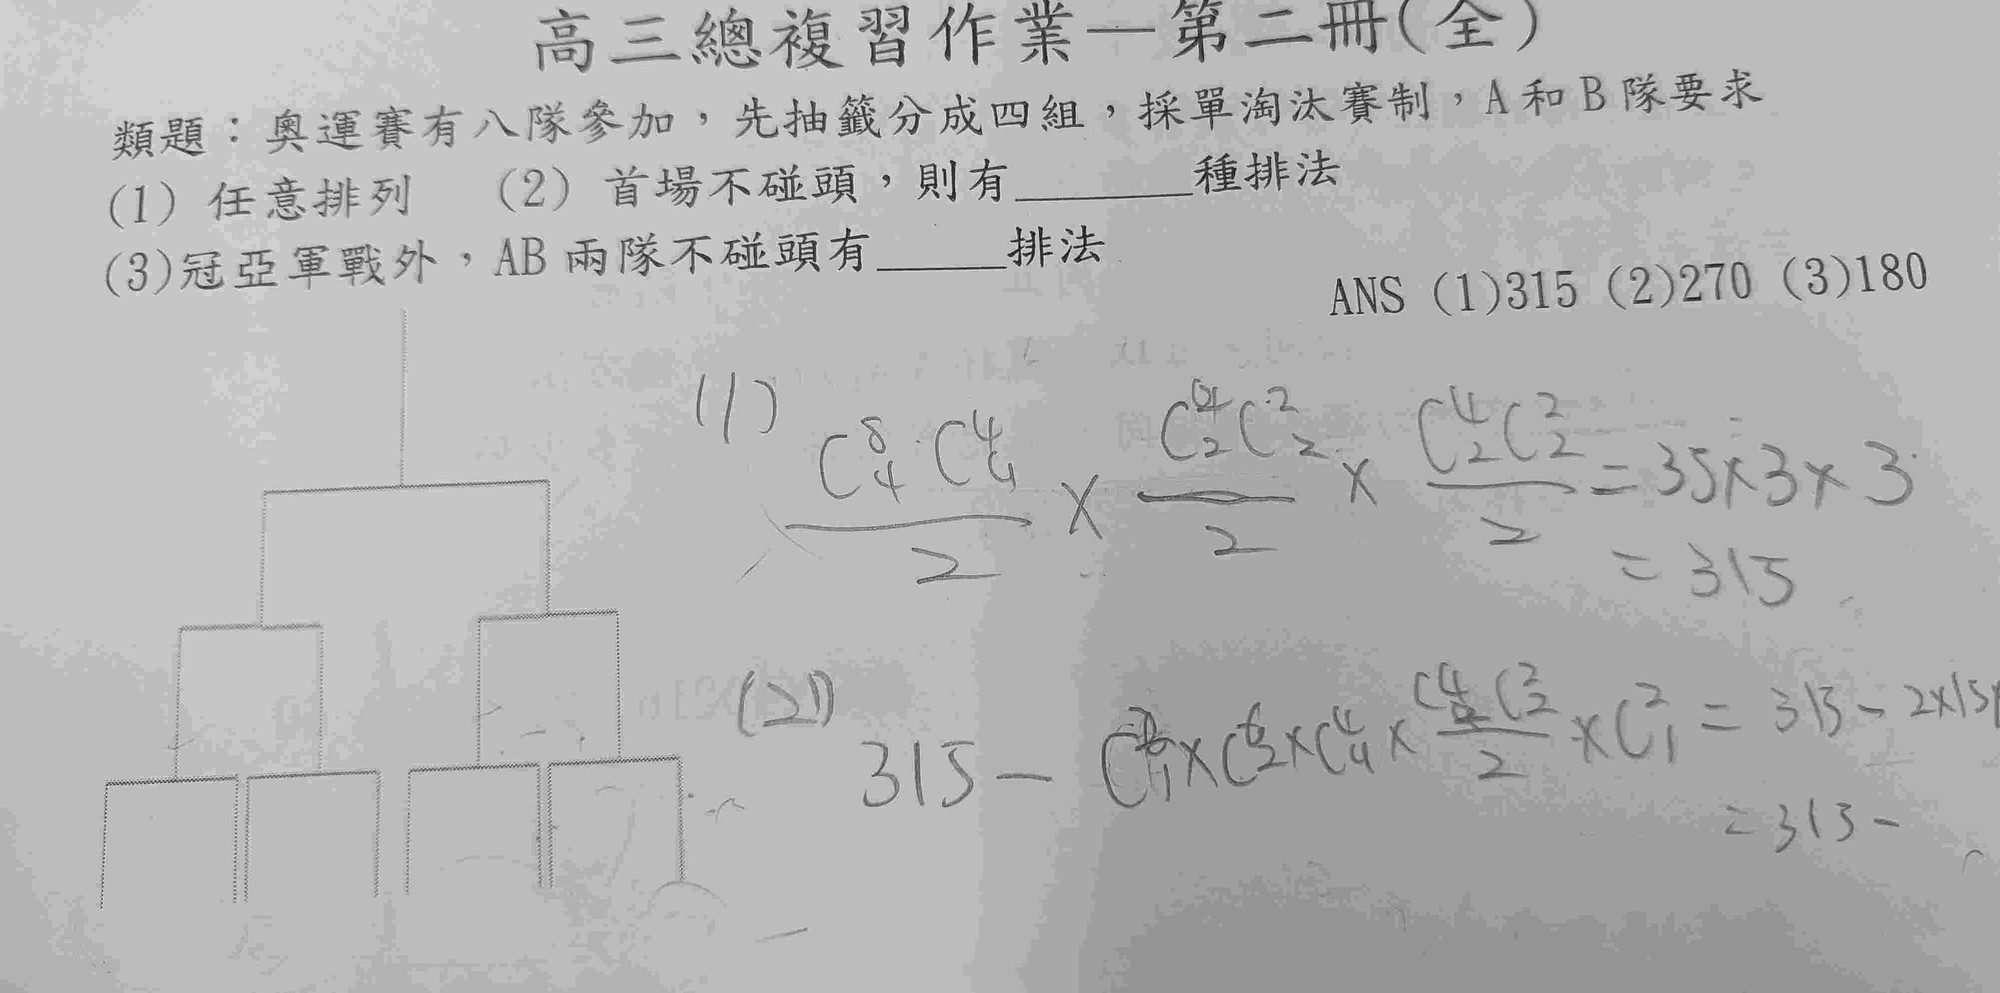 高三總複習作業—第二冊(全)
類題：奧運賽有八隊參加，先抽籤分成四組，採單淘汰賽制，A和B隊要求
(1) 任意排列 (2) 首場不碰頭，則有______種排法
(3)冠亞軍戰外，AB兩隊不碰頭有_____排法
ANS (1)315 (2)270 (3)180
(1) C^8_4 C^4_4 / 2 × C^4_2 C^2_2 / 2 × C^4_2 C^2_2 / 2 = 35×3×3
= 315
(2) 315 - × C^6_2 × C^4_4 × C^4_2 C^2_2 / 2 × C^2_1 = 315 - 2×15
= 315 -